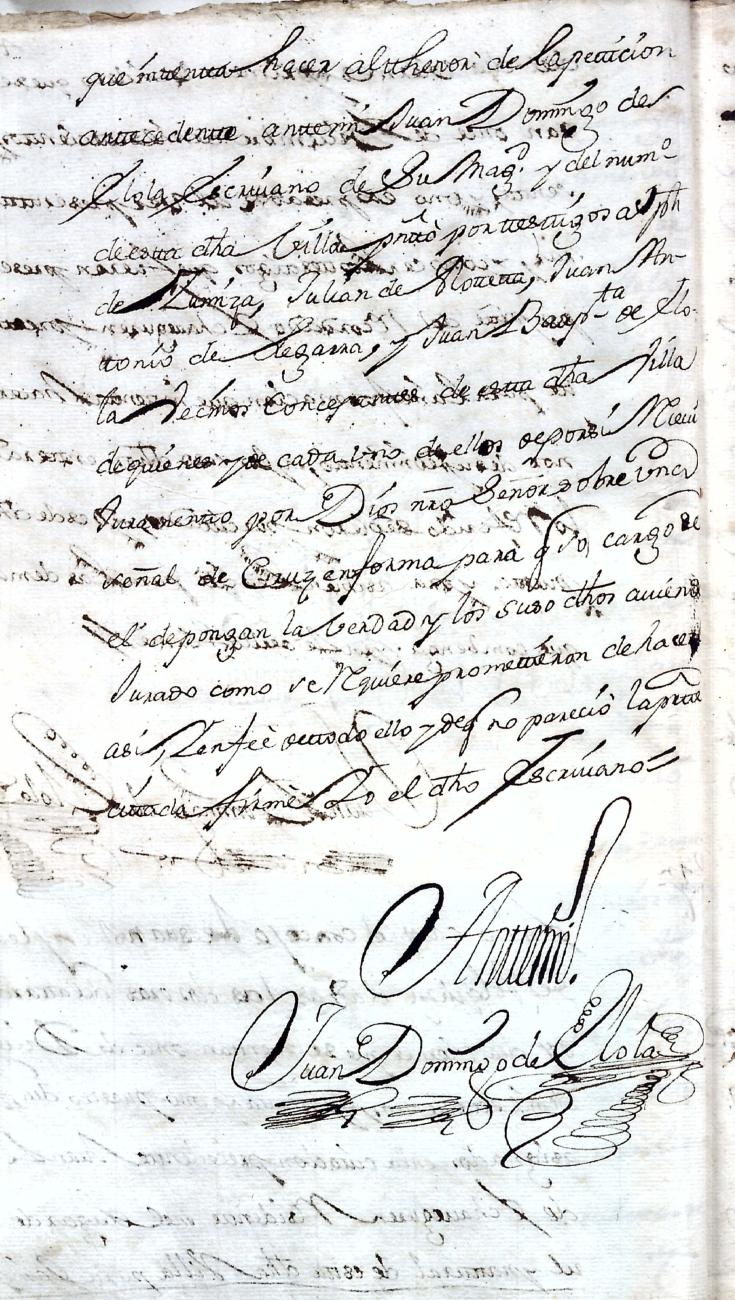 que intenta hacer al thenor de la peticion
antecedente ante mi Juan Domingo de
Olola Escriuano de Su Magd. y del numº
de esta dha Villa pntò por testigos a Jph
de Zumza, Julian de Rotteta, Juan An-
tonio de Legarra, y Juan Bap.ta de Olo-
la Vecinos Concejantes de esta dha Villa
de quienes y de cada uno de ellos de por si Reciui
Juramento por Dios nrò Señor sobre Vna
señal de Cruz en forma para q so cargo de
el depongan la Verdad y los suso dhos auiend
Jurado como se Rquiere promettieron de hacer
asi, Y en feè de todo ello y de q no pareciò la parte
cittada firmè Yo el dho Escriuano=
Antemi.
Juan Domingo de Olola